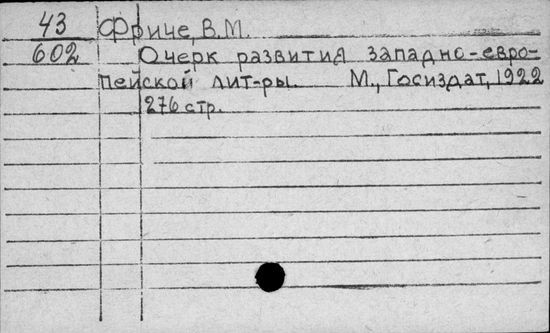 43 Фриче, В.М.
602 Очерк развития западно-евро-
пейской лит-ры. М., Госиздат, 1922
276 стр.